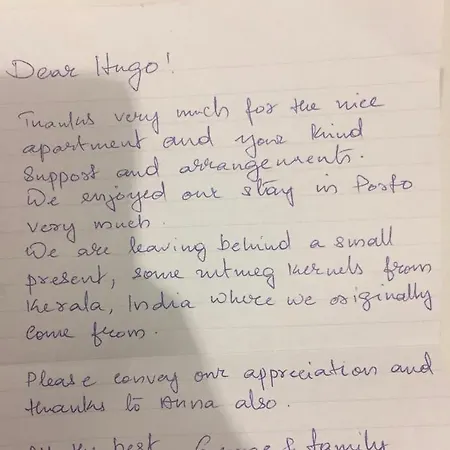 Dear Hugo!
Thanks very much for the nice
apartment and your kind
support and arrangements.
We enjoyed our stay in Porto
very much.
We are leaving behind a small
present, some nutmeg kernels from
Kerala, India where we originally
come from.
Please convey our appreciation and
thanks to Anna also.
best & family